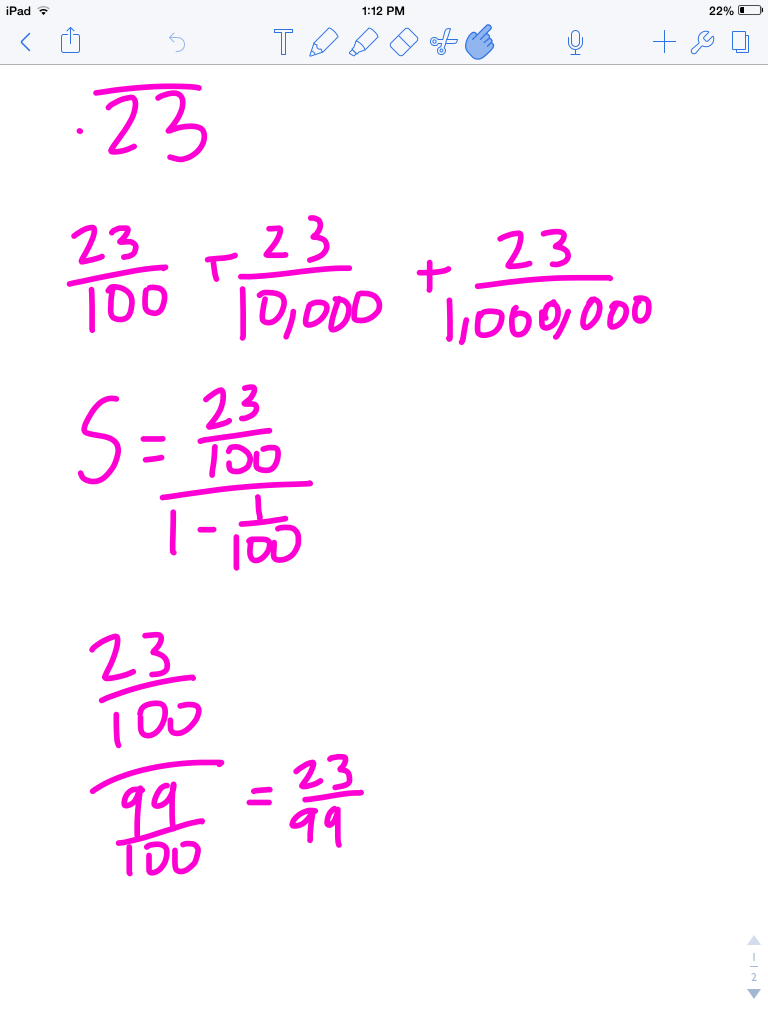 iPad 1:12 PM 22%
T
. 2̅3̅
23/100 + 23/10,000 + 23/1,000,000
S = (23/100)/(1 - 1/100)
(23/100)/(99/100) = 23/99
1
2